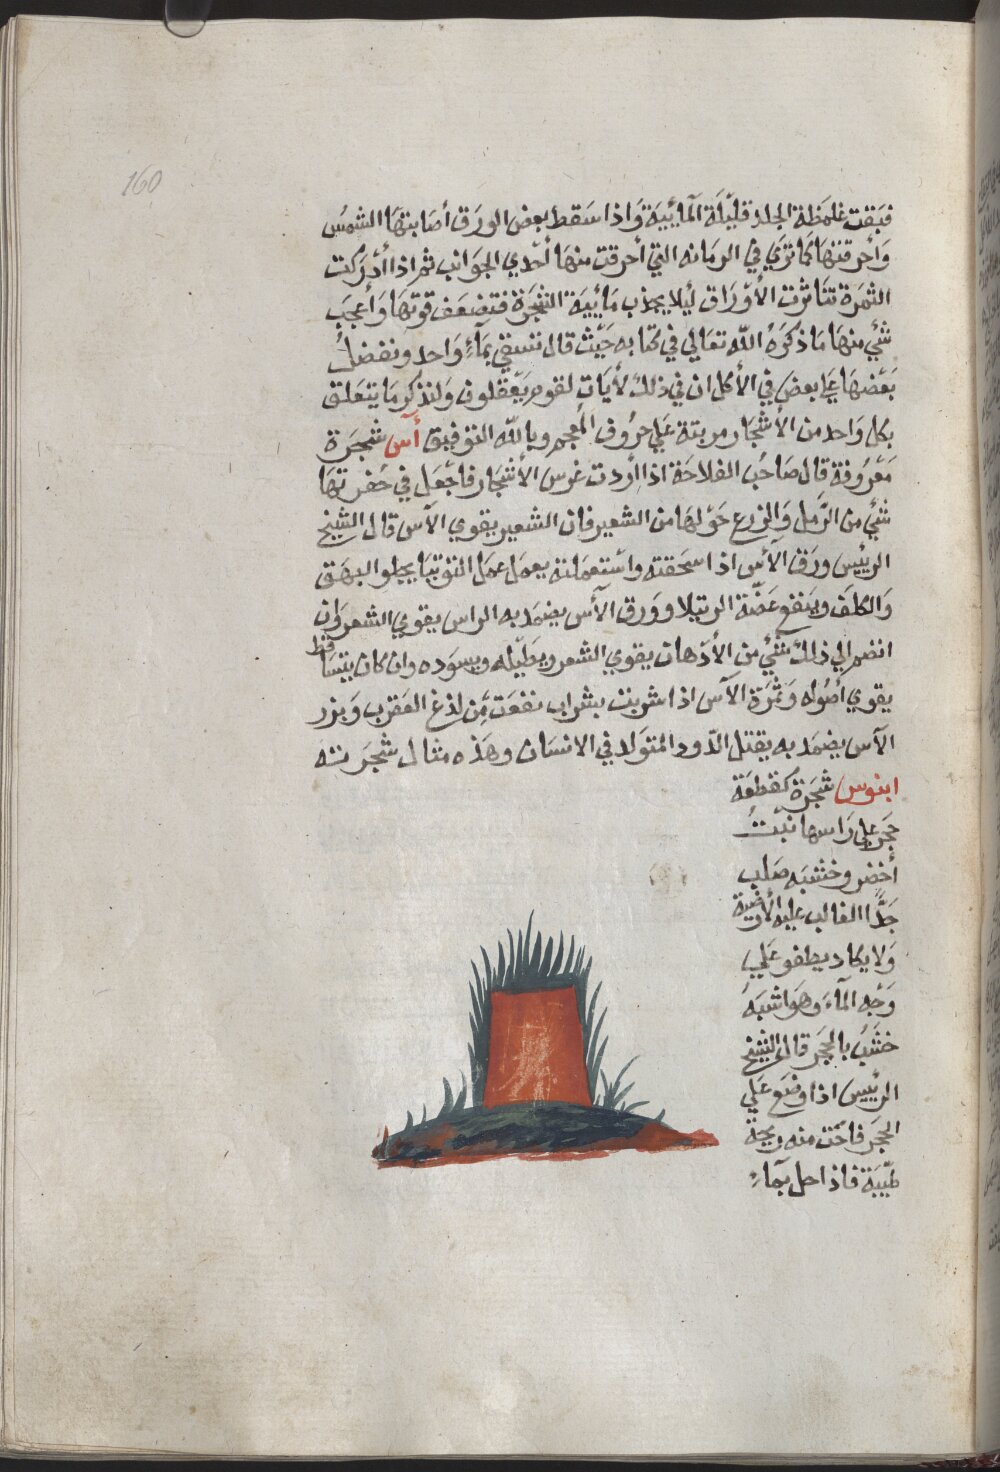 160
فبقت غليظة الجلد قليلة المائية واذا سقط بعض الورق أصابتها الشمس
وأحرقتها كما تري في الرمانه التي أحرقت منها أحدي الجوانب ثم اذا أدركت
الثمرة تناثرت الأوراق ليلا يجذب مائية الشجرة فتضعف قوتها وأعجب
شئ منها ما ذكره الله تعالي في كتابه حيث قال تسقي بمآء واحد ونفضل
بعضها علي بعض في الأكل ان في ذلك لأيات لقوم يعقلون ولنذكر ما يتعلق
بكل واحد من الأشجار مرتبة علي حروف المعجم وبالله التوفيق آس شجرة
معروفة قال صاحب الفلاحة اذا أردت غرس الأشجار فاجعل في حفرتها
شئ من الرمل والزرع حولها من الشعير فان الشعير يقوي الآس قال الشيخ
الرئيس ورق الآس اذا سحقته واستعملته يعمل عمل التوتيا يجلو البهق
والكلف وينفع عضة الرتيلا وورق الآس يضمد به الراس يقوي الشعر وان
انضم الي ذلك شئ من الأدهان يقوي الشعر ويطيله ويسوده وان كان يتساقط
يقوي اصوله وثمرة الآس اذا شربت بشراب نفعت من لذغ العقرب وبزر
الآس يضمد به يقتل الدود المتولد في الانسان وهذه مثال شجرته
ابنوس شجرة كقطعة
حجر علي راسها نبت
أخضر وخشبه صلب
جدا الغالب عليه الأرضية
ولا يكاد يطفو علي
وجه المآء وهو اشبه
خشب بالحجر قال الشيخ
الرئيس اذا وضع علي
الجمر فاحت منه ريحة
طيبة فاذا حل بمآء